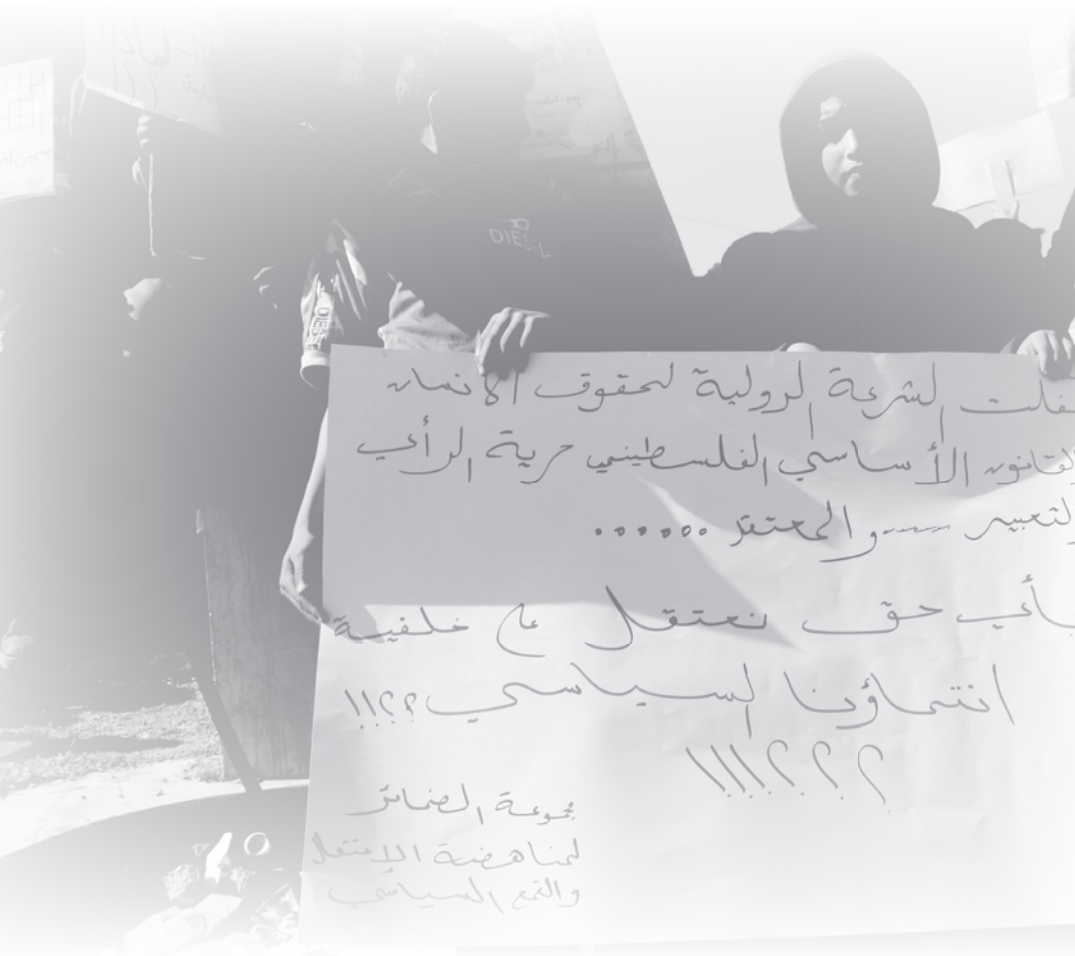 DIESEL
DIESEL
فلت الشرعة الدولية لحقوق الانسان
القانون الأساسي الفلسطيني حرية الرأي
التعبير ----- والمعتقد ......
بأي حق نعتقل على خلفية
انتماؤنا السياسي ؟؟!!
؟؟؟!!!!
مجموعة الضمائر
لمناهضة الإعتقال
والقمع السياسي